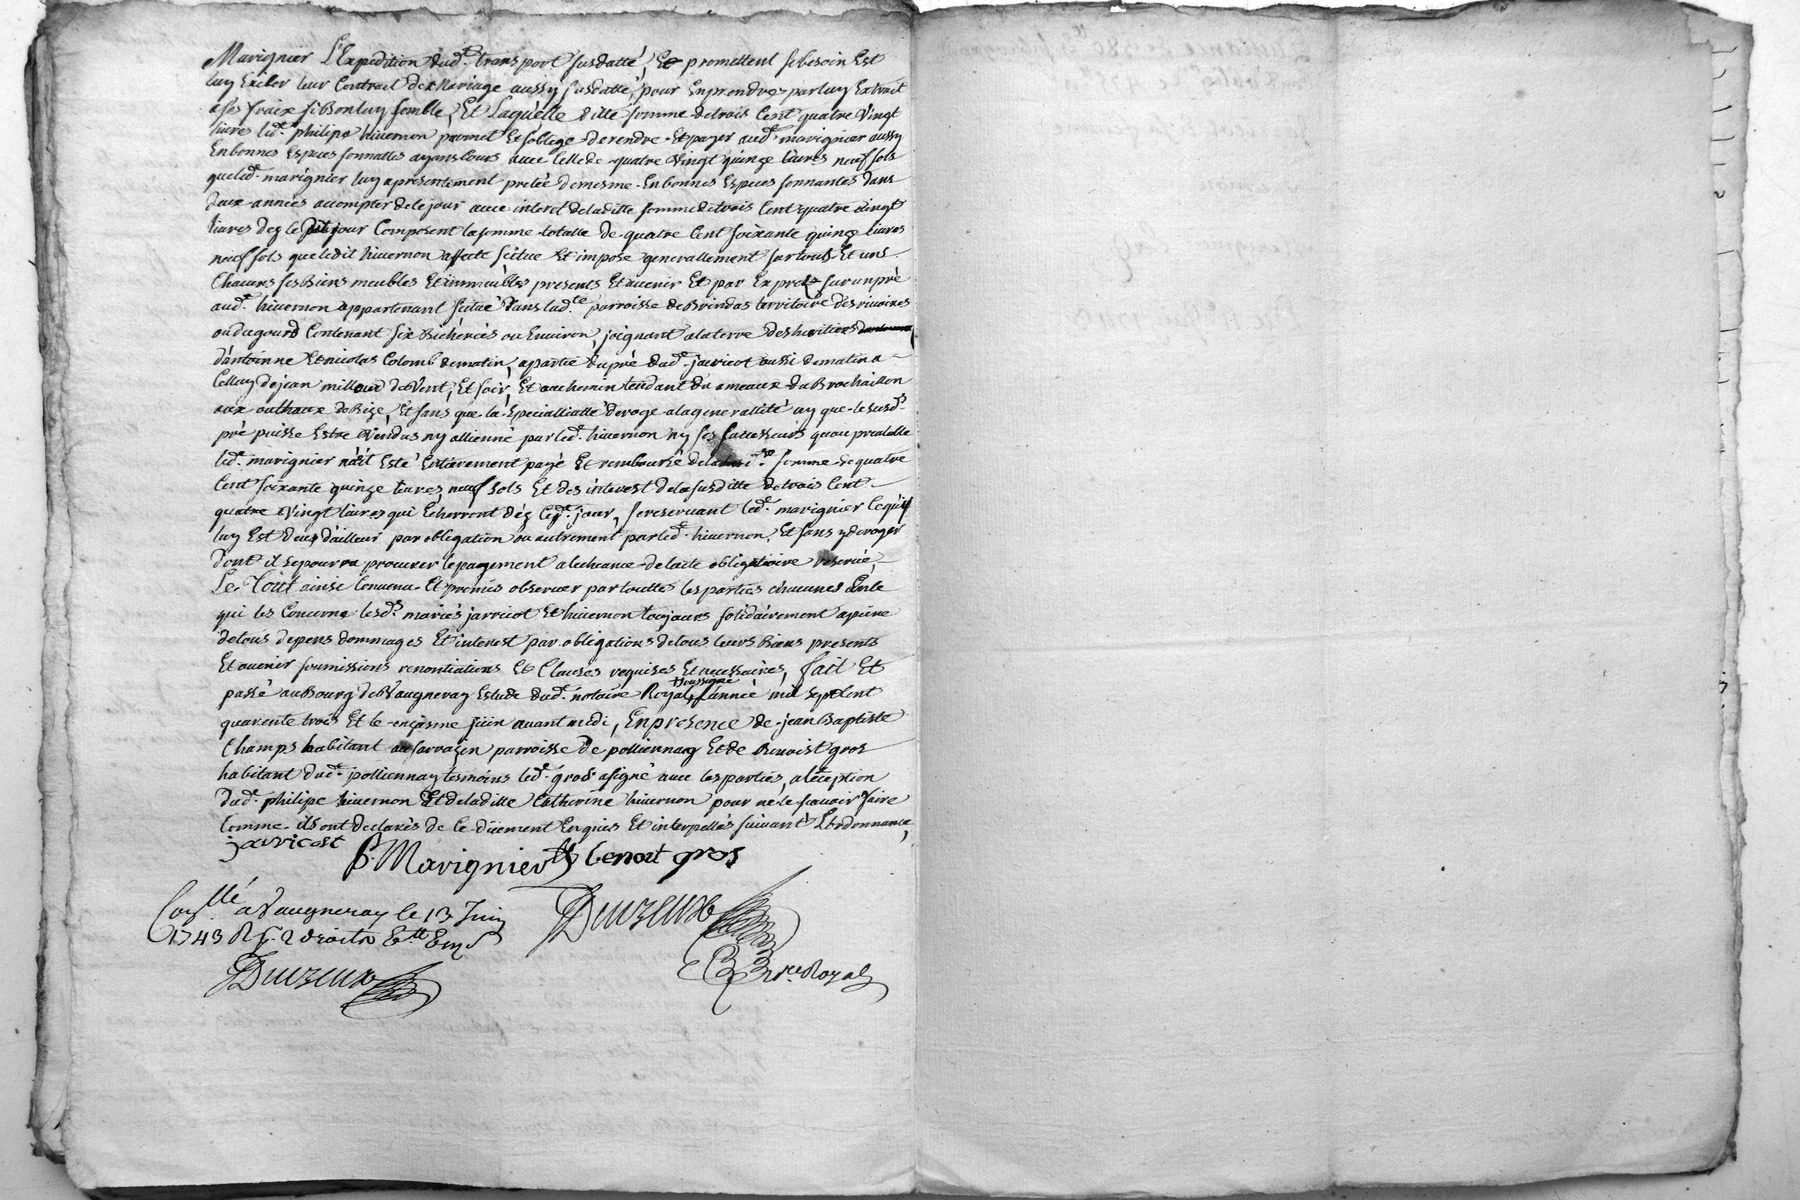 Marignier L'Expedition dud.t transport susdatté, Et promettent si besoin Est
luy Exiber leur Contrait de Mariage aussy susdatté, pour En prendre par luy Extrait
a ses fraix si Bon luy semble, Et Laquelle ditte somme de trois Cent quatre Vingt
livres led.t philipe hivernon promet Et soblige de rendre Et payer aud.t marignier aussy
En bonnes Especes sonnattes ayans Cours avec Celle de quatre Vingt quinze livres neuf sols
que led.t marignier luy a presentement pretée de mesme En bonnes Especes sonnantes dans
deux années a compter de ce jour avec interet de laditte somme de trois Cent quatre Vingt
livres dez le jour Composent la somme totalle de quatre Cent soixante quinze livres
neuf sols que ledit hivernon affecte scitue Et impose generallement sur touts Et uns
Chacuns ses Biens meubles Et immeubles presents Et avenir Et par Exprets sur un pré
aud.t hivernon appartenant scitué dans lad.te parroisse de Brindas territoire des rivoires
ou dagourd Contenant six Bicherées ou Environ, joignant a la terre des heritiers
d'antoinne Et nicolas Colomb de matin, a partie du pré dud.t jarricot aussi de matin a
Celluy de jean milloud de Vent, Et soir, Et au chemin tendant du ameaux du Brochaillon
aux outhaux de Bize, Et sans que la specialliatté deroge a la generallité ny que le susd.t
pré puisse Estre Vendus ny allienné par led.t hivernon ny ses successeurs quau prealable
led.t marignier n'ait Esté Entierement payé Et remboursé de la somme de quatre
Cent soixante quinze livres neuf sols Et des interest de la susditte de trois Cent
quatre Vingt livres qui Echerront dez ced.t jour, se reservant led.t marignier Ce qu'il
luy Est deus d'ailleur par obligation ou autrement par led.t hivernon, Et sans y deroger
dont il se pourra procurer le payement a lecheance de lacte obligatoire reservé,
Le Tout ainsi Convenu Et promis observer par touttes les parties chacunes En le
qui les Concerne lesd.ts mariés jarricot Et hivernon toujours solidairement a peine
de tous depens dommages Et interest par obligations de tous leurs Biens presents
Et avenir soumissions renontiations Et Clauses requises Et necessaires, fait Et
passé au Bourg de Vaugneray Estude dud.t notaire Royal, soussigné l'année mil sept Cent
quarente trois Et le onzieme juin avant midi, En presence de jean Baptiste
Champs habitant au sarrazin parroisse de pollionnay Et de Benoist gros
habitant dud.t pollionnay tesmoins led.t gros a signé avec les parties, a l'eception
dud.t philipe hivernon Et de laditte Catherine hivernon pour ne le scavoir faire
Comme ils ont declarés de Ce düement Enquis Et interpellés suivant L'ordonnance,
jarricost
P. Marignier benoit gros
Con.llé a Vaugneray le 13 Juin
1743 R